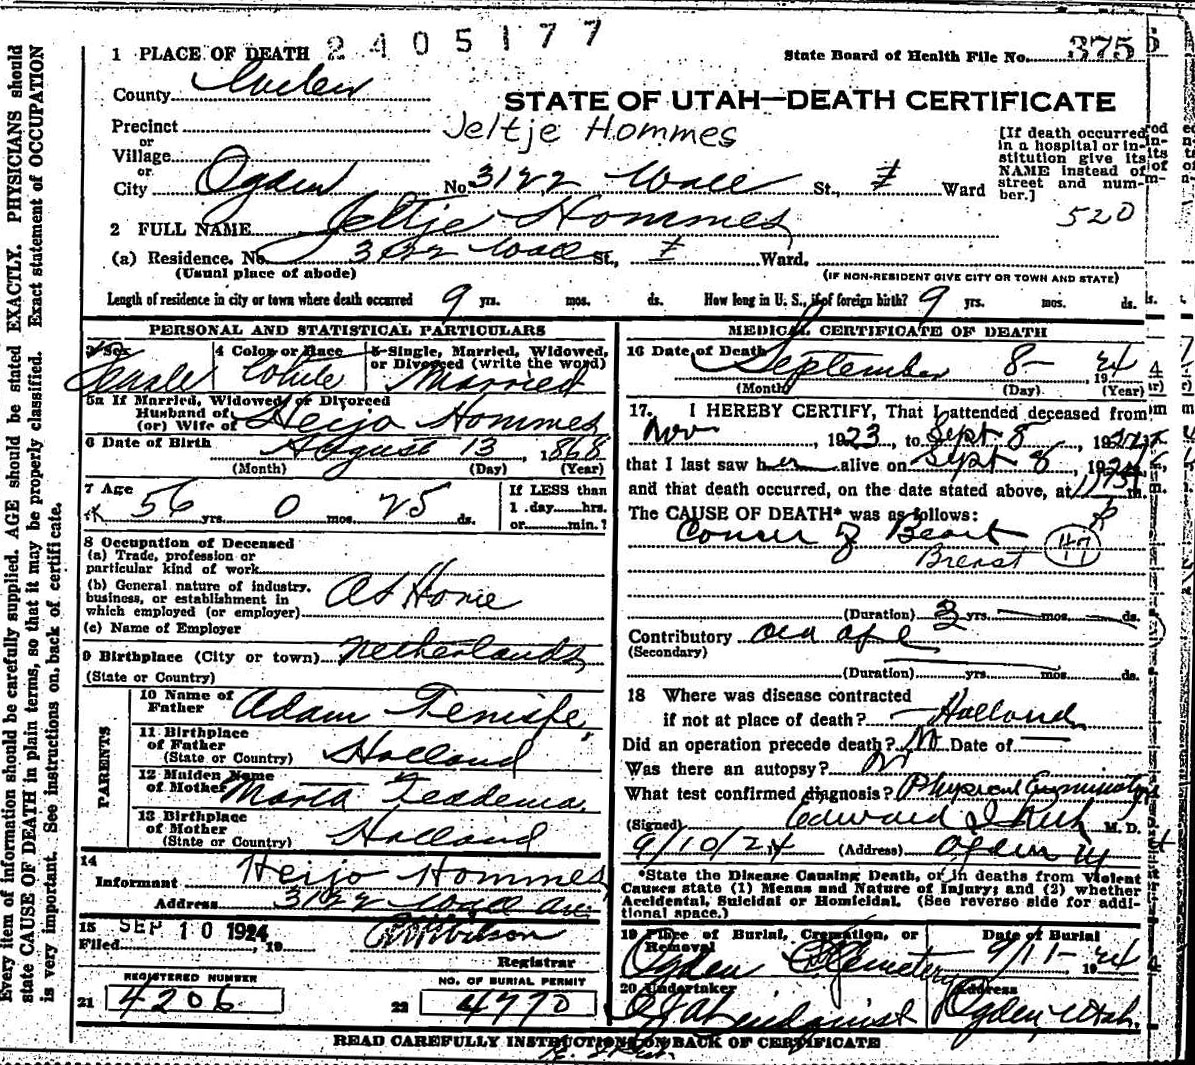 2405177
1 PLACE OF DEATH
State Board of Health File No. 375
County
STATE OF UTAH—DEATH CERTIFICATE
Precinct
Jeltje Hommes
or
Village
or
City Ogden No. 3122 Wall St., Ward
[If death occurred in a hospital or institution give its NAME instead of street and number.]
520
2 FULL NAME Jeltje Hommes
(a) Residence. No. 3122 Wall St., Ward.
(Usual place of abode)
(IF NON-RESIDENT GIVE CITY OR TOWN AND STATE)
Length of residence in city or town where death occurred 9 yrs. mos. ds. How long in U. S., if of foreign birth? 9 yrs. mos. ds.
PERSONAL AND STATISTICAL PARTICULARS
3 Sex
Female
4 Color or Race
White
5 Single, Married, Widowed,
or Divorced (write the word)
Married
5a If Married, Widowed, or Divorced
Husband of
(or) Wife of Heijo Hommes
6 Date of Birth August 13, 1868
(Month) (Day) (Year)
7 Age
56 yrs. 0 mos. 25 ds.
If LESS than
1 day hrs.
or min.?
8 Occupation of Deceased
(a) Trade, profession or
particular kind of work
(b) General nature of industry,
business, or establishment in
which employed (or employer) At Home
(c) Name of Employer
9 Birthplace (City or town) Netherlands
(State or Country)
PARENTS
10 Name of
Father Adam
11 Birthplace
of Father
(State or Country) Holland
12 Maiden Name
of Mother
13 Birthplace
of Mother
(State or Country) Holland
14
Informant Heijo Hommes
Address 3122 Wall Ave
15
Filed SEP 10 1924, 19 Wilson
Registrar
REGISTERED NUMBER
21 4206
NO. OF BURIAL PERMIT
22 4770
MEDICAL CERTIFICATE OF DEATH
16 Date of Death September 8 1924
(Month) (Day) (Year)
17. I HEREBY CERTIFY, That I attended deceased from
Nov, 1923, to Sept 8, 1924
that I last saw her alive on Sept 8, 1924,
and that death occurred, on the date stated above, at m.
The CAUSE OF DEATH* was as follows:
Cancer of Breast
Breast 47
(Duration) 3 yrs. mos. ds.
Contributory old age
(Secondary)
(Duration) yrs. mos. ds.
18 Where was disease contracted
if not at place of death? Holland
Did an operation precede death? No Date of
Was there an autopsy? No
What test confirmed diagnosis? Physical Examination
(Signed) Edward I Rich M. D.
9/10/24 (Address) Ogden Ut
*State the Disease Causing Death, or in deaths from Violent
Causes state (1) Means and Nature of Injury; and (2) whether
Accidental, Suicidal or Homicidal. (See reverse side for addi-
tional space.)
19 Place of Burial, Cremation, or
Removal
Ogden Cemetery
Date of Burial
9/11- 1924
20 Undertaker
Lindquist
Address
Ogden, Utah.
READ CAREFULLY INSTRUCTIONS ON BACK OF CERTIFICATE
Every item of information should be carefully supplied. AGE should be stated EXACTLY. PHYSICIANS should
state CAUSE OF DEATH in plain terms, so that it may be properly classified. Exact statement of OCCUPATION
is very important. See instructions on back of certificate.